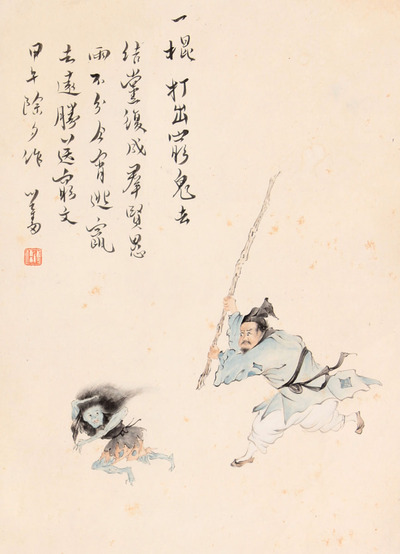 一棍打出窮鬼去
結黨復成羣賢愚
兩不分今宵逃竄
去遠勝送窮文
甲午除夕作 心畬